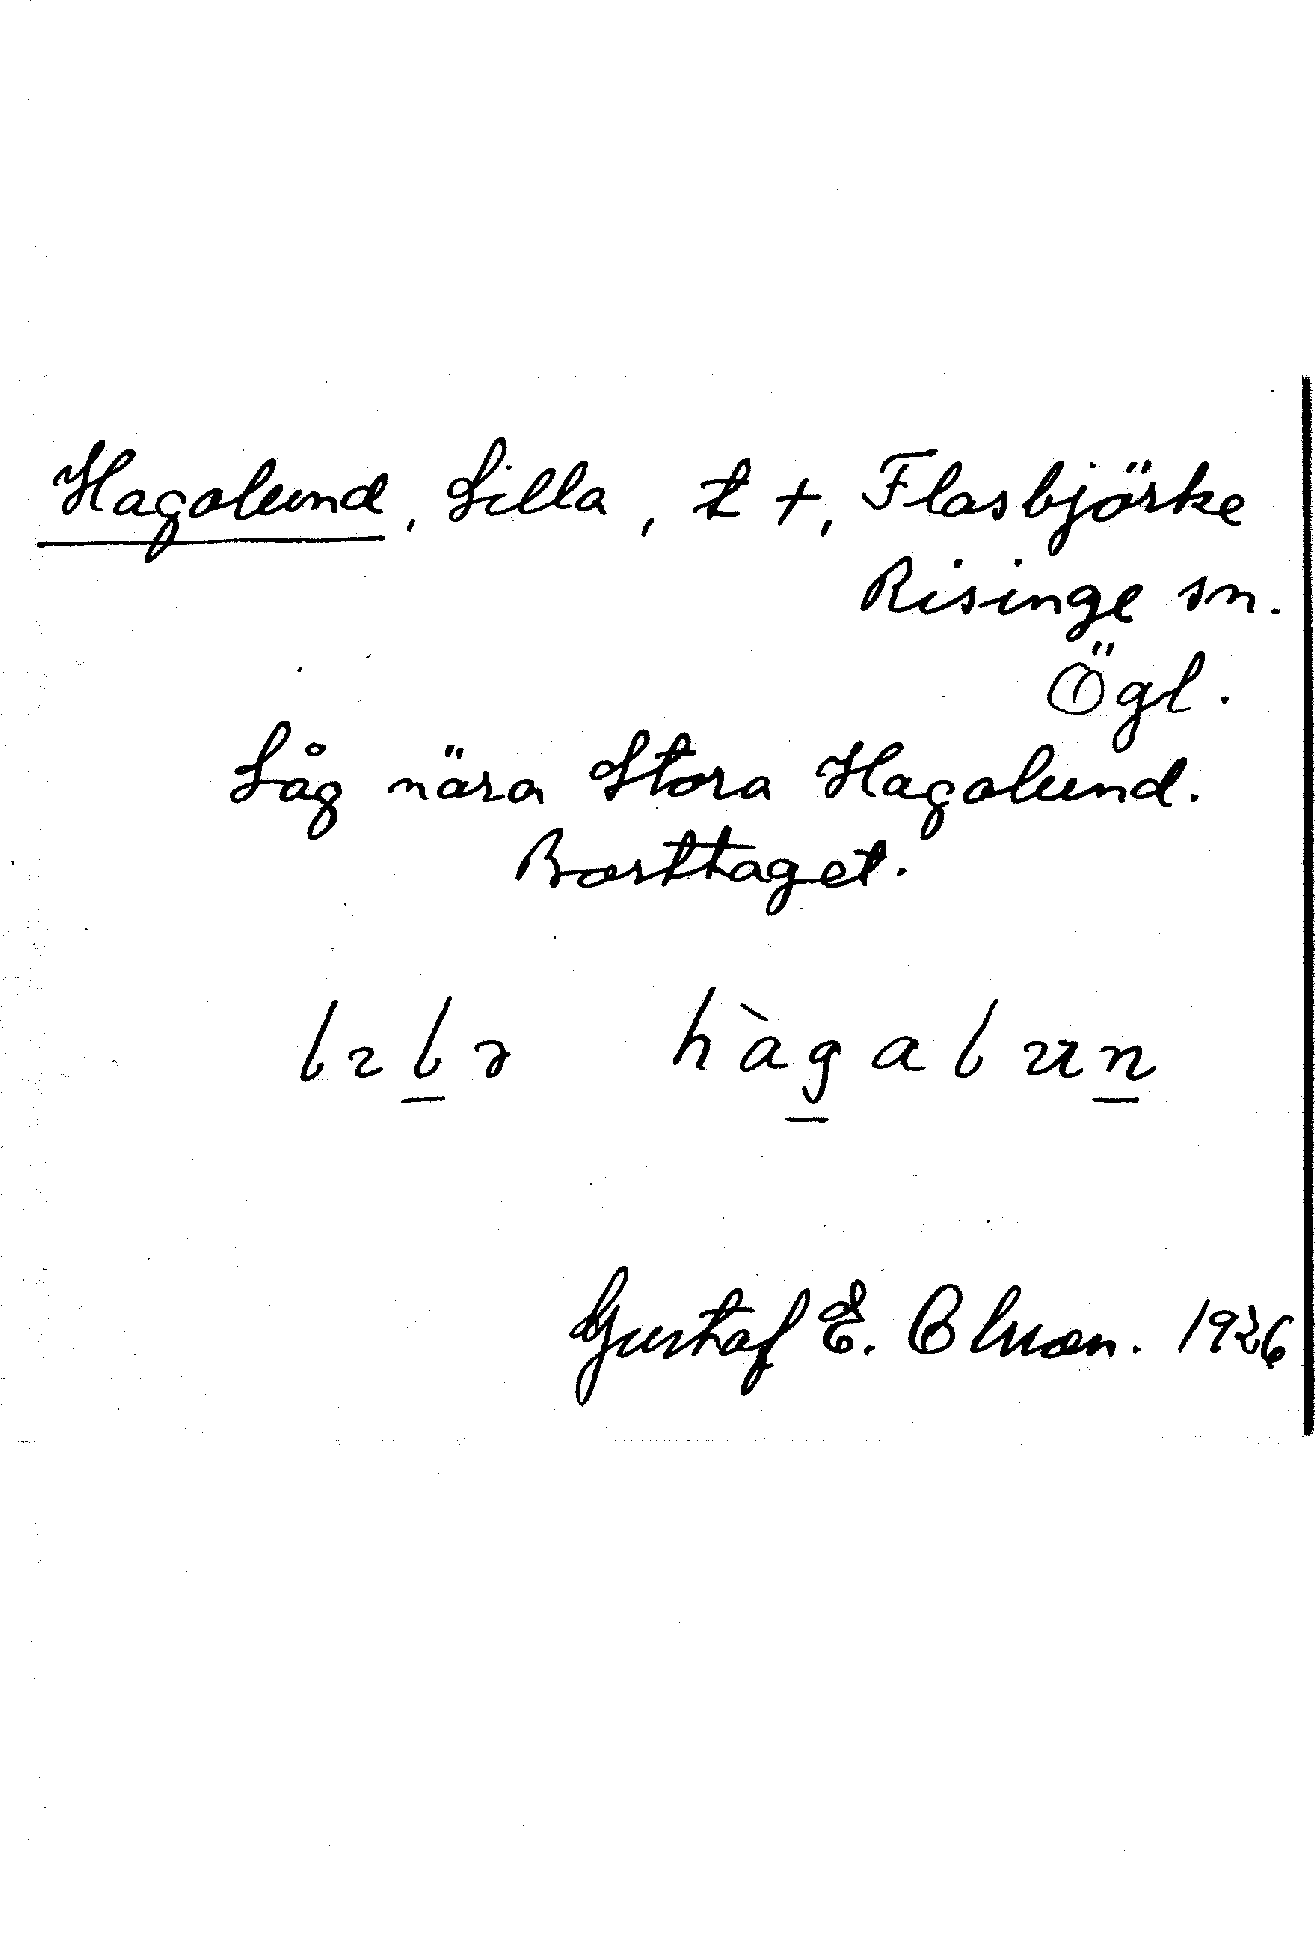 Hagalund, Lilla, t +, Flasbjörke
Risinge sn.
Ögl.
Låg nära Stora Hagalund.
Borttaget.
Gustaf E. Olsson. 1926